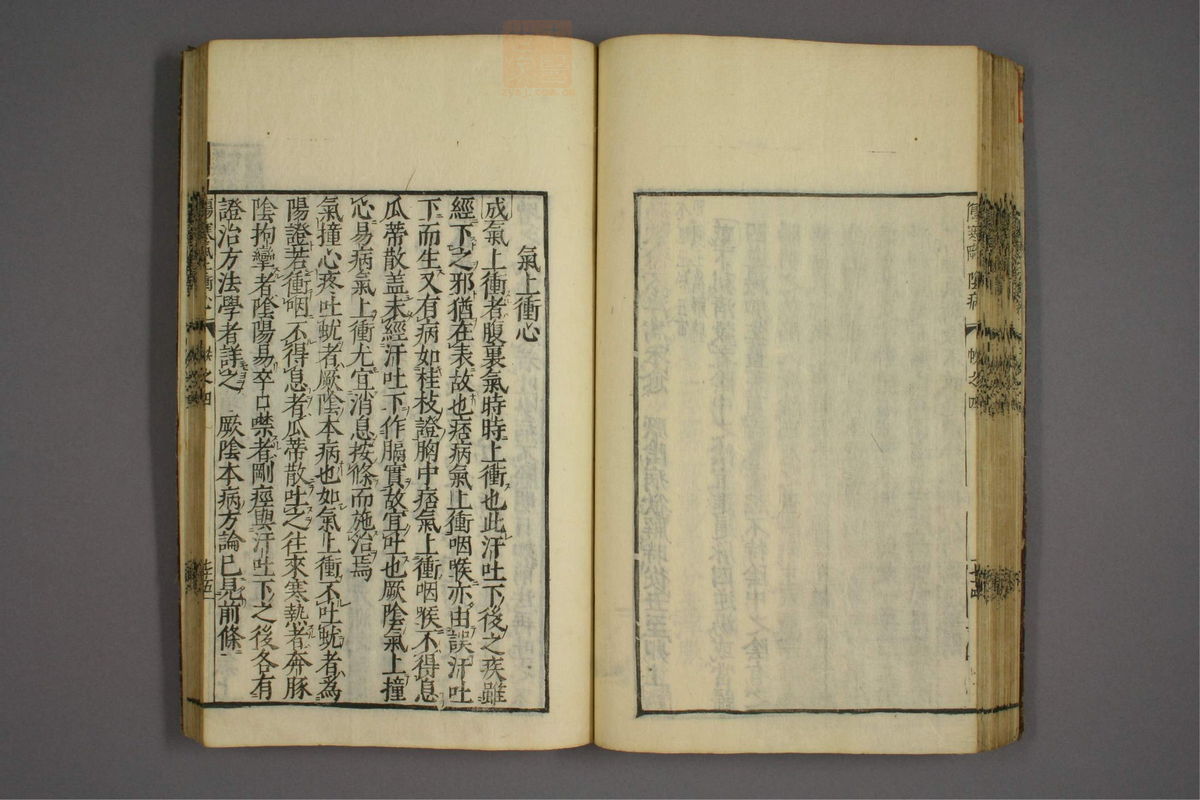 氣上衝心
成氣上衝者腹裏氣時時上衝也此汗吐下後之疾雖
經下之邪猶在表故也痞病氣上衝咽喉亦由誤汗吐
下而生又有病如桂枝證胸中痞氣上衝咽喉不得息
瓜蒂散盖未經汗吐下作膈實故宜吐也厥陰氣上撞
心易病氣上衝尤宜消息按條而施治焉
氣撞心疼吐蚘者厥陰本病也如氣上衝不吐蚘者為
陽證若衝咽不得息者瓜蒂散吐之往來寒熱者奔豚
陰拘攣者陰陽易卒口噤者剛痙與汗吐下之後各有
證治方法學者詳之　厥陰本病方論已見前條